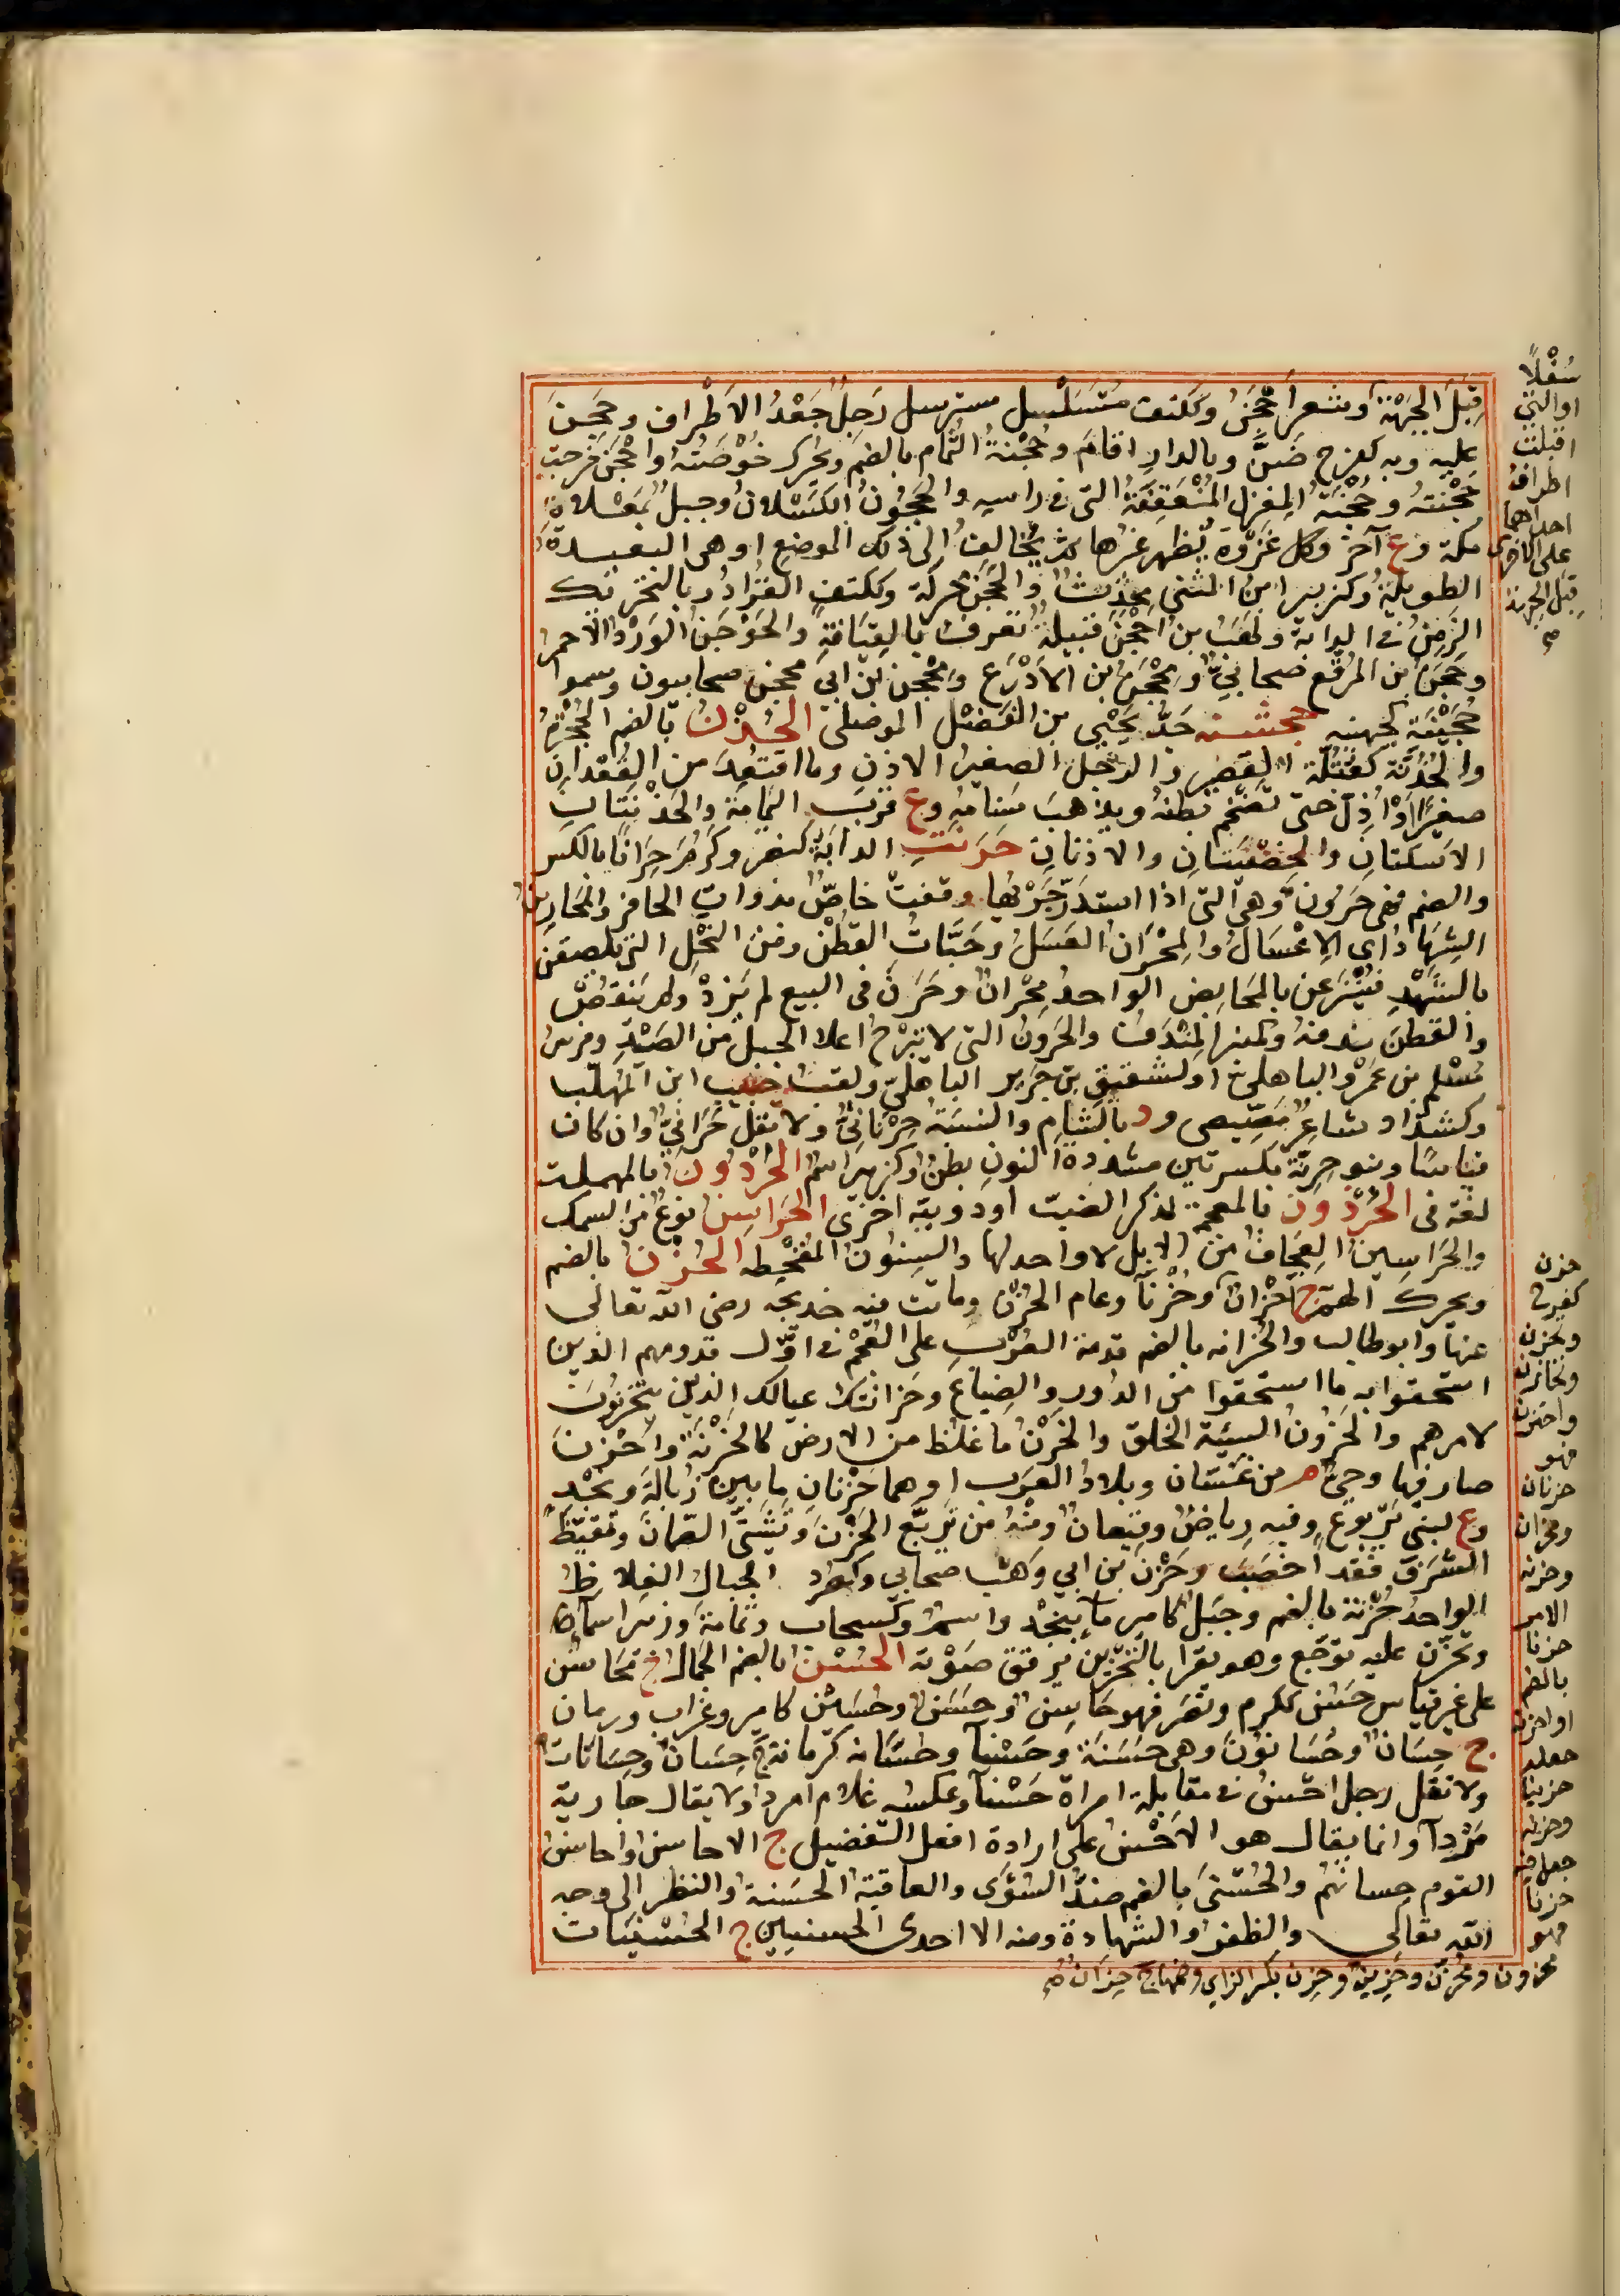 قِبَلَ الجَبْهَةِ وشعر أَحْجَنُ وككتف متسلسل مسترسل رَجِلٌ جَعْدُ الاَطْراف وحَجِنَ
عليه وبه كفرح ضَنَّ وبالدار اقامَ وحُجْنَةُ الثُّمام بالضم ويُحرك خُوْصَتُهُ واحْجَنَ خرجت
حُجْنَتُهُ وحُجْنَةُ المِغْزل المُنْعَقِفَةُ التى فى راسه والحَجُونُ الكَسْلانُ وجبلٌ بمَعْلاة
مكة وع آخر وكل غَزْوة يُظهر غيرها ثم يُخالِفُ الى ذلك الموضع او هى البعيدة
الطويلة وكزبير ابن المثنى محدث والحَجَن محركة وككتف القُرادُ وبالتحريك
الزَمِنُ فى الدابة ولِهْبُ بن اَحْجَن قبيلة تُعرفُ بالقِيَافَة والحَوْجَنُ الوَرْدُ الاَحْمرُ
وحَجَن بن المرقع صحابىٌّ ومِحْجَنُ بن الاَدْرَع ومِحْجَن بن ابى محجن صحابيون وسموا
حُجَيْنَة كجهينه جحشنه جَدُّ يَحْيى بن الفَضْل الموصلى الحُذْنُ بالضم الحُجْزةُ
والحُذُنّة كعُتُلّة القصير والرجل الصغير الاذن وما اقتُعِدَ من القِعْدان
صغيرًا واُذِلّ حتى تضخّم بَطنهُ ويذهبَ سَنامُهُ وع قربَ اليمامَة والحُذُنّتانِ
الاَسْكتانِ والخصْيَتانِ والاذنانِ حَرنتِ الدابَة كنصر وكرُمَ حِرانًا بالكسر
والضم فهى حَرُون وهى التى اذا استُدِرّ جَرْيُها وقفتْ خاصٌّ بذوات الحافر والمَحارِينُ
الشِهادُ اى الاِعْسالُ والمِحْرانُ العَسَلُ وحَبَّاتُ القطْن ومن النَحْل التى يلصقن
بالشَهْد فيُنْزَعن بالمَحَابِض الواحدُ مِحْرانٌ وحَرَنَ فى البيع لم يَزدْ ولم يَنقُصْ
والقطن ندفهُ وكمنبر المِنْدَفُ والحَرونُ التى لا تَبْرَحُ اعلا الجبل من الصَيْدِ وفرسُ
مُسْلِم بن عَمْرو الباهلىّ اولشقيق بن جَرير الباهلىّ ولقبُ حبيب ابن المُهَلّب
وكشداد شاعِرٌ مَصِّيصى ود بالشام والنسبة حَرْنانىٌّ ولا تقل حَرّانىّ وان كان
قياسًا وبنو حِرِنّةَ بكسرتين مشددة النونِ بطنٌ وكزبير اسمٌ الحُرْدُون بالمهملة
لغة فى الحُرْذون بالمعجمة لذكر الضب اودويبّة اخرى الحَراسِنُ نوعٌ من السمك
والحَرَاسِينُ العِجافُ من الابل لا واحد لها والسِنونُ المُقْحِطه الحُزْنُ بالضم
ويحرك الهمّ ج اَحْزانٌ وحُزنًا وعام الحُزْن وماتت فيه خديجه رضى الله تعالى
عنها وابو طالب والحُزانه بالضم قدمة العُرْبِ على العُجْم فى اوّل قدومهم الذين
استحقوا به ما استحقوا من الدُّورِ والضِياعِ وحزانتُك عيالك الذين تتحزنُونَ
لامرهم والحَزُونُ السيئة الخلق والحَزْنُ ما غلظ من الارض كالحَزْنَةِ واَحْزَنَ
صار فيها وحىٌّ من غسّان وبلادُ العَرَب او هما حَزْنانِ ما بين زُبالَةَ ونَجْد
وع لبنى يَرْبوعٍ وفيه رِياضٌ وقيعانٌ ومنهُ من تَرَبّع الحَزْنَ وتَشَتّى الصّمّانَ وتقيّظَ
الشَرَفَ فقد اَخصَبَ وحَزْن بن ابى وَهْب صحابى وكصُرد الجبالُ الغِلاظُ
الواحدُ حُزْنة بالضم وجَبلٌ كامير ماءٌ بنجْد واسمٌ وكسحاب وثُمامة وزبير اسماءٌ
وتحزّن عليه توجّع وهو يقرأ بالتَحْزين يُرقق صَوْته الحُسْنُ بالضم الجمالُ ج مَحَاسنُ
على غير قياس حَسُن ككرم ونصَر فهو حَاسِنٌ وحَسَنٌ وحسينٌ كامير وغُراب ورمان
ج حِسَانٌ وحُسَّانُونَ وهى حَسَنَة وحَسْناء وحُسّانه كرمانة ج حِسَان وحُسّانات
ولا تقل رجل احْسَنُ فى مقابلة امراة حَسْناء وعكسه غلام امرد ولا يقال جارية
مَرْداء وانما يقال هو الاَحْسَنُ على ارادة افعل التفضيل ج الاحاسن واحاسنُ
القوم حِسانُهُم والحُسْنَى بالضم ضدُّ السُوْءَى والعاقبة الحَسَنة والنظر الى وجه
الله تعالى والظفر والشهادة ومنه الا احدى الحسنيين ج الحُسْنَيات
سُفْلًا
اوالتى
اقبلت
اطراف
احداهما
على الاخرى
قِبَلَ الجبهة
حزن
كفرح
وتحزن
وتحازن
واحتزن
فهو
حزنان
ومحزان
وحزنه
الامر
حزنا
بالضم
اواحزنه
جعله
حزينا
وحزنه
جعل فيه
حزنا
فهو
محزون ومُحْزَن وحَزِين وحزن بكسر الزاى وضمها ج حِزَان